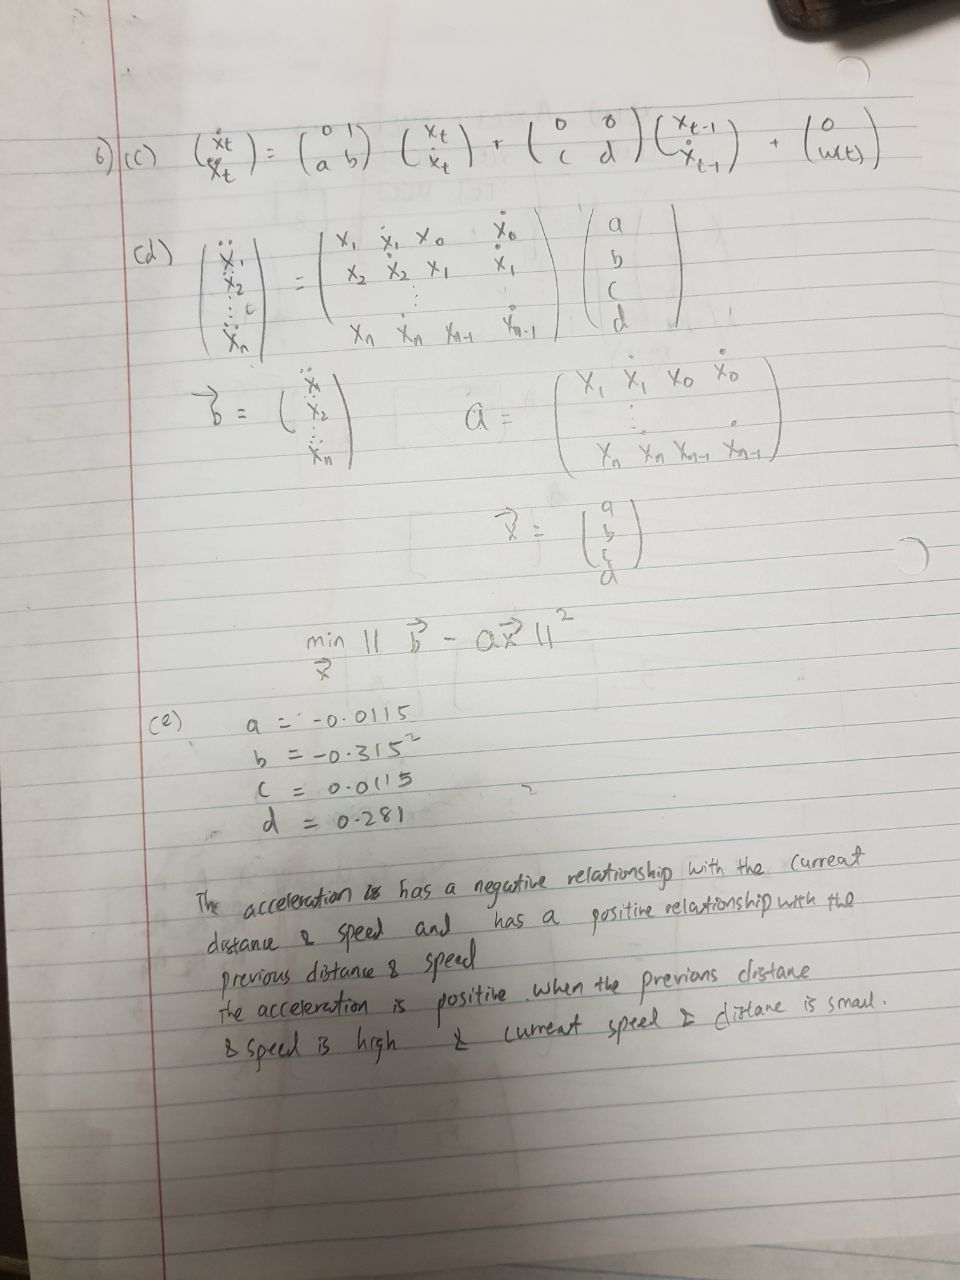 6) (c) (ẋt ẍt) = (0 1 a b) (xt ẋt) + (0 0 c d) (xt-1 ẋt-1) + (0 w(t))
(d) (ẍ1 ẍ2 ⋮ ẍn) = (x1 ẋ1 x0 ẋ0 x2 ẋ2 x1 ẋ1 ⋮ xn ẋn xn-1 ẋn-1) (a b c d)
b⃗ = (ẍ1 ẍ2 ⋮ ẍn) a = (x1 ẋ1 x0 ẋ0 ⋮ xn ẋn xn-1 ẋn-1)
x⃗ = (a b c d)
min x⃗ || b⃗ - a x⃗ ||²
(e) a = -0.0115
b = -0.315
c = 0.0115
d = 0.281
The acceleration has a negative relationship with the current
distance & speed and has a positive relationship with the
previous distance & speed
The acceleration is positive when the previous distane
& speed is high & current speed & distane is small.